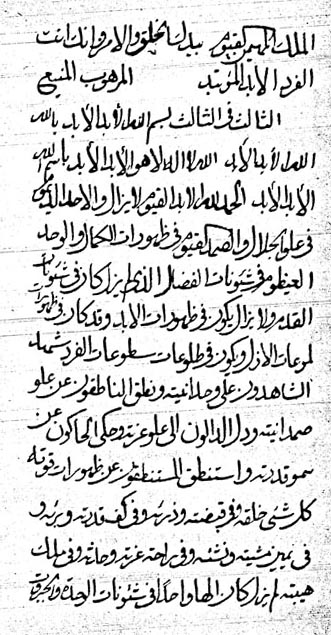 الملك المهيمن القيوم بيدك الخلق والامر وانك انت
الفرد الابد المؤبد المرهوب المنيع
الثالث في الثالث بسم الله الأبد الأبد بالله
الله الأبد الأبد الله لا اله الا هو الأبد الأبد باسم الله
الأبد الأبد الحمد لله الابد القيوم لا يزال والاحد
في علو الجلال والصمد القيوم في ظهورات الكمال والوحد
العيظوم في شئونات الفضال الذي لم يزل كان في شئونات
القدم ولا يزال يكون في ظهورات الابد وقد كان في ظهورات
لموعات الأزل ويكون في طلوعات سطوعات الفرد شهد
الشاهدون على وحدانيته ونطق الناطقون عن علو
صمدانيته ودل الدالون الى علو عزته وحكى الحاكون عن
سمو قدرته واستنطق المستنطقون عن ظهورات قوته
كل شئ خلقه وفي قبضته وذرئه وفي كف قدرته وبرئه و
في يمين مشيته ونشئه وفي راحة عزته وفي ملك
هيبته لم يزل كان الها واحدا في شئونات الوحدة